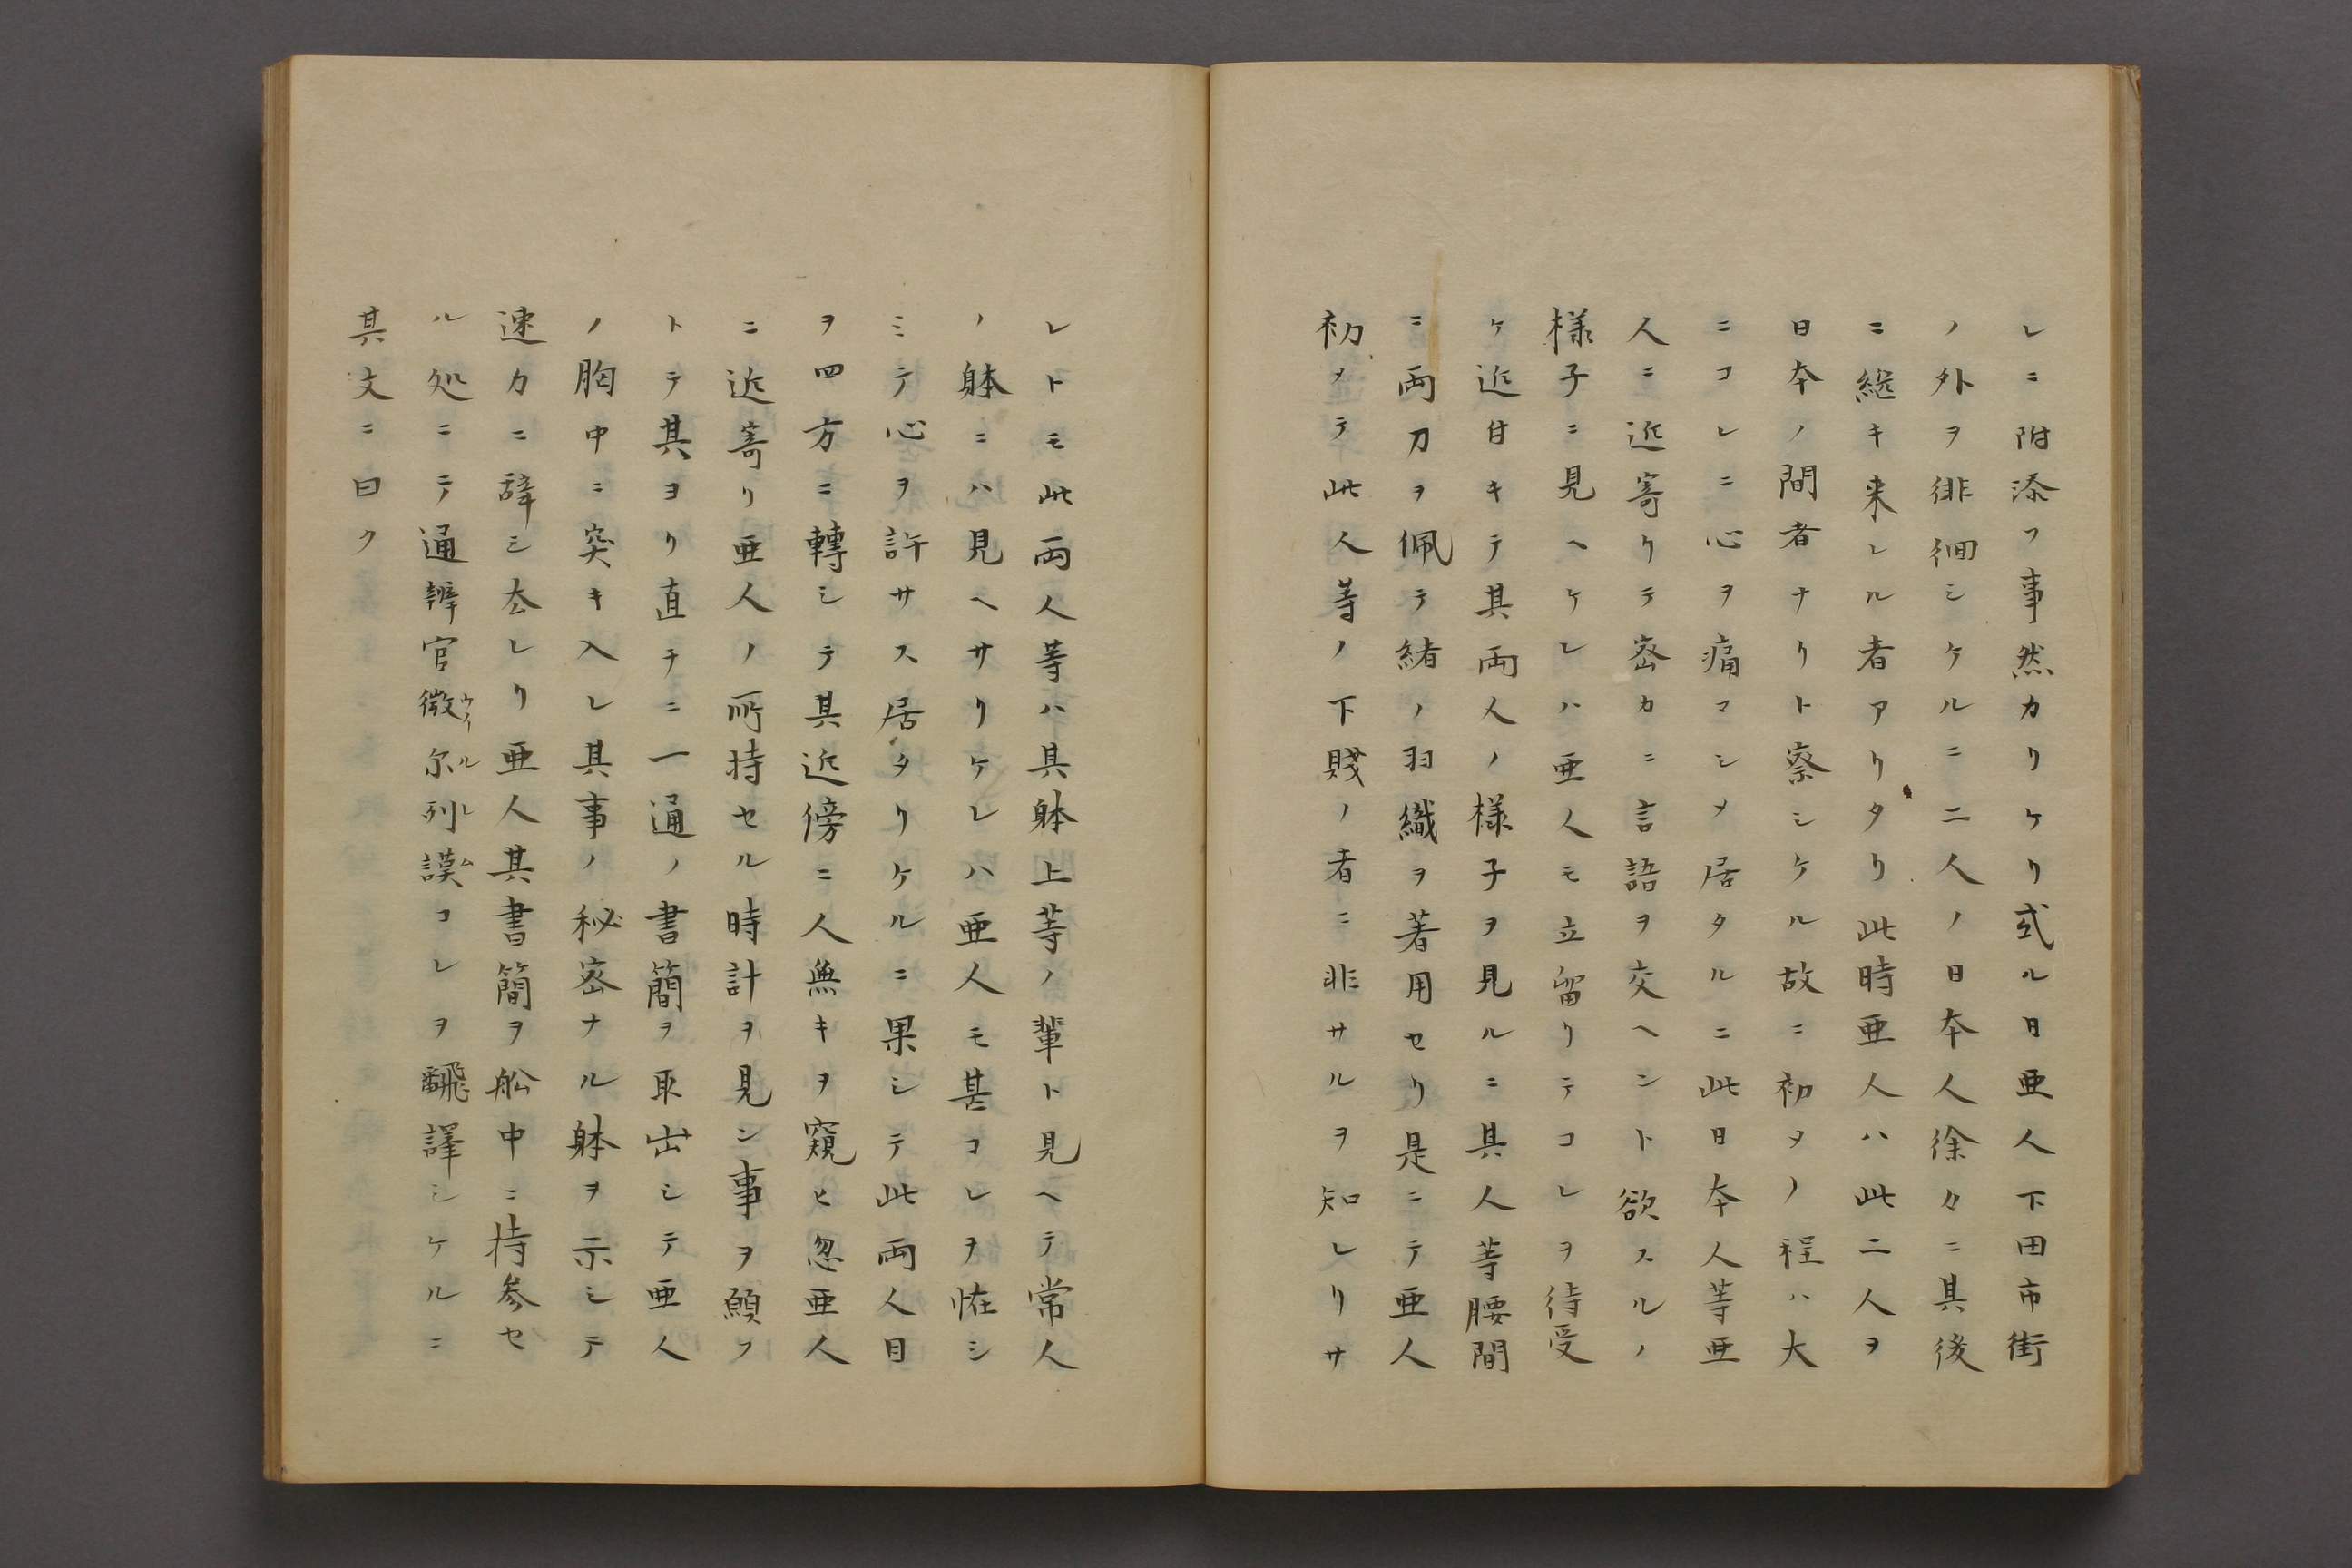 レニ附添フ事然カリケリ或ル日亜人下田市街
ノ外ヲ徘徊シケルニ二人ノ日本人徐々ニ其後
ニ継キ来レル者アリタリ此時亜人ハ此二人ヲ
日本ノ間者ナリト察シケル故ニ初メノ程ハ大
ニコレニ心ヲ痛マシメ居タルニ此日本人等亜
人ニ近寄リテ密カニ言語ヲ交ヘント欲スルノ
様子ニ見ヘケレハ亜人モ立留リテコレヲ待受
ケ近付キテ其両人ノ様子ヲ見ルニ其人等腰間
ニ両刀ヲ佩テ緒ノ羽織ヲ著用セリ是ニテ亜人
初メテ此人等ノ下賤ノ者ニ非サルヲ知レリサ
レトモ此両人等ハ其躰上等ノ輩ト見ヘテ常人
ノ躰ニハ見ヘサリケレハ亜人モ甚コレヲ恠シ
ミテ心ヲ許サス居タリケルニ果シテ此両人目
ヲ四方ニ轉シテ其近傍ニ人無キヲ窺ヒ忽亜人
ニ近寄リ亜人ノ所持セル時計ヲ見ン事ヲ願フ
トテ其ヨリ直チニ一通ノ書簡ヲ取出シテ亜人
ノ胸中ニ突キ入レ其事ノ秘密ナル躰ヲ示シテ
速カニ辞シ去レリ亜人其書簡ヲ舩中ニ持参セ
ル処ニテ通辨官微尓列謨コレヲ飜譯シケルニ
其文ニ曰ク